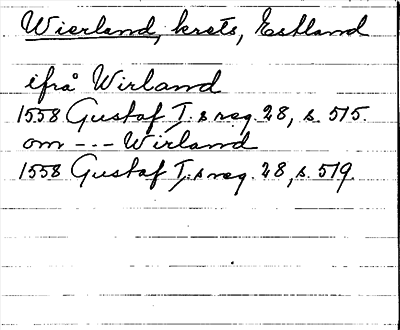 Wierland, krets, Estland
ifrå Wirland
1558 Gustaf I.s reg. 28, s. 515.
om --- Wirland
1558 Gustaf I.s reg. 28, s. 519.